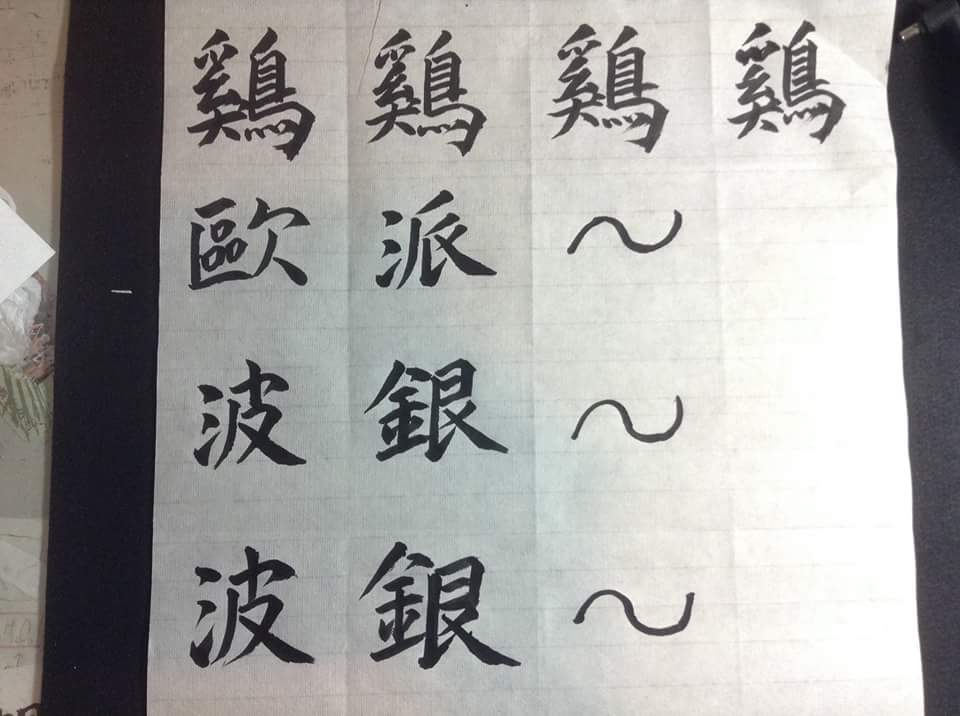 鷄鷄鷄鷄
歐派～
波銀～
波銀～